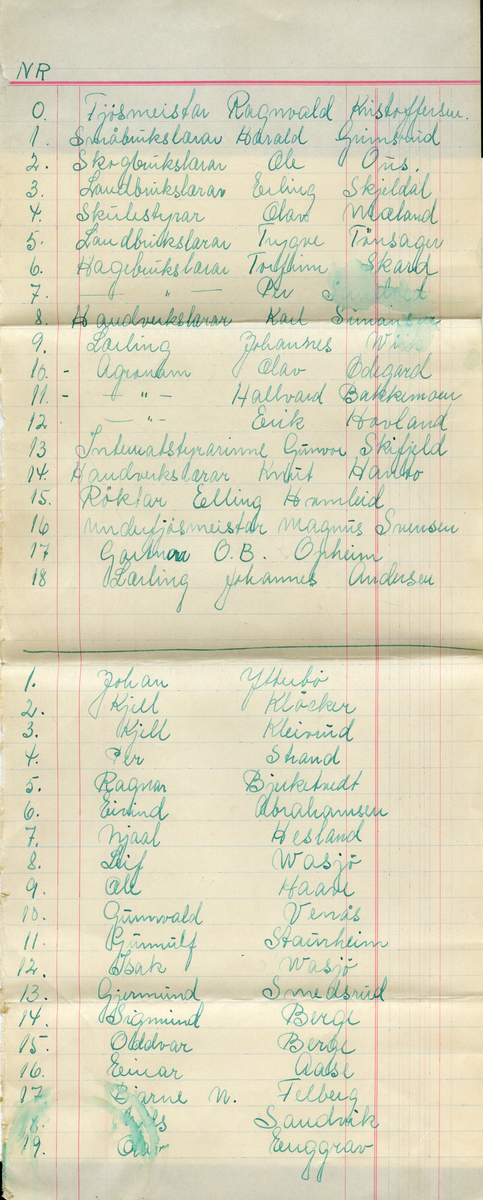 NR
0. Fjösmeistar Ragnvald Kristoffersen.
1. Småbrukslærar Harald Grimsrud
2. Skogbrukslærar Ole Ous.
3. Landbrukslærar Erling Skjeldal
4. Skulestyrar Olav Mæland
5. Landbrukslærar Trygve Tönsager
6. Hagebrukslærar Skard
7. — " — Per
8. Handverkslærar Karl Simonsen
9. Lærling Johannes
10. - Agronom Olav Ödegard
11. - - " - Hallvard Bakkemoen
12 - " - Eirik Hovland
13 Internatstyrarinne Gunvor Skifjeld
14. Handverkslærar Knut
15. Röktar Elling Homleid
16 Underfjösmeistar Magnus Svensen
17 Gartnar O.B. Opheim
18 Lærling Johannes Andersen
1. Johan Ytterbö
2. Kjell Klöcker
3. Kjell Kleivund
4. Per Strand
5. Ragnar Bjerketvedt
6. Eivind Abrahamsen
7. Njaal Hesland
8. Leif Wasjö
9. Ole Haave
10. Gunnvald Venås
11. Gunnulf Staurheim
12. Isak Wasjö
13. Gjermund Smedsrud
14. Sigmund Berge
15. Oddvar Berge
16. Einar Aase
17. Bjarne N. Felberg
18. Nils Sandvik
19. Olav Enggrav